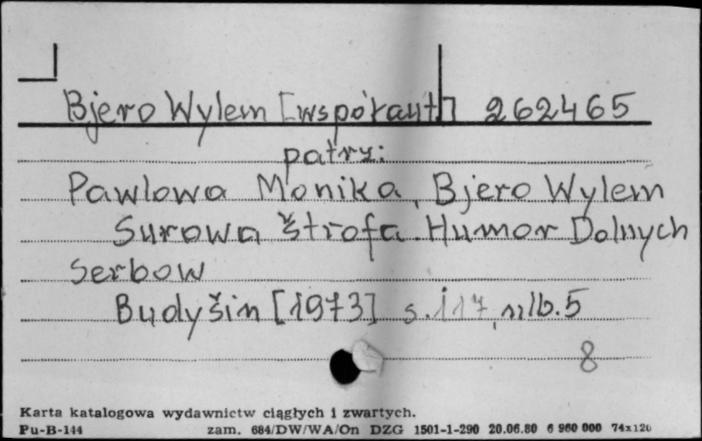 Bjero Wylem [współaut] 262465
patrz:
Pawlowa Monika, Bjero Wylem
Surowa štrofa. Humor Dolnych
Serbow
Budyšin [1973] s. 117, nlb. 5
8
Karta katalogowa wydawnictw ciągłych i zwartych.
Pu-B-144 zam. 684/DW/WA/On DZG 1501-1-290 20.06.80 6 960 000 74x120